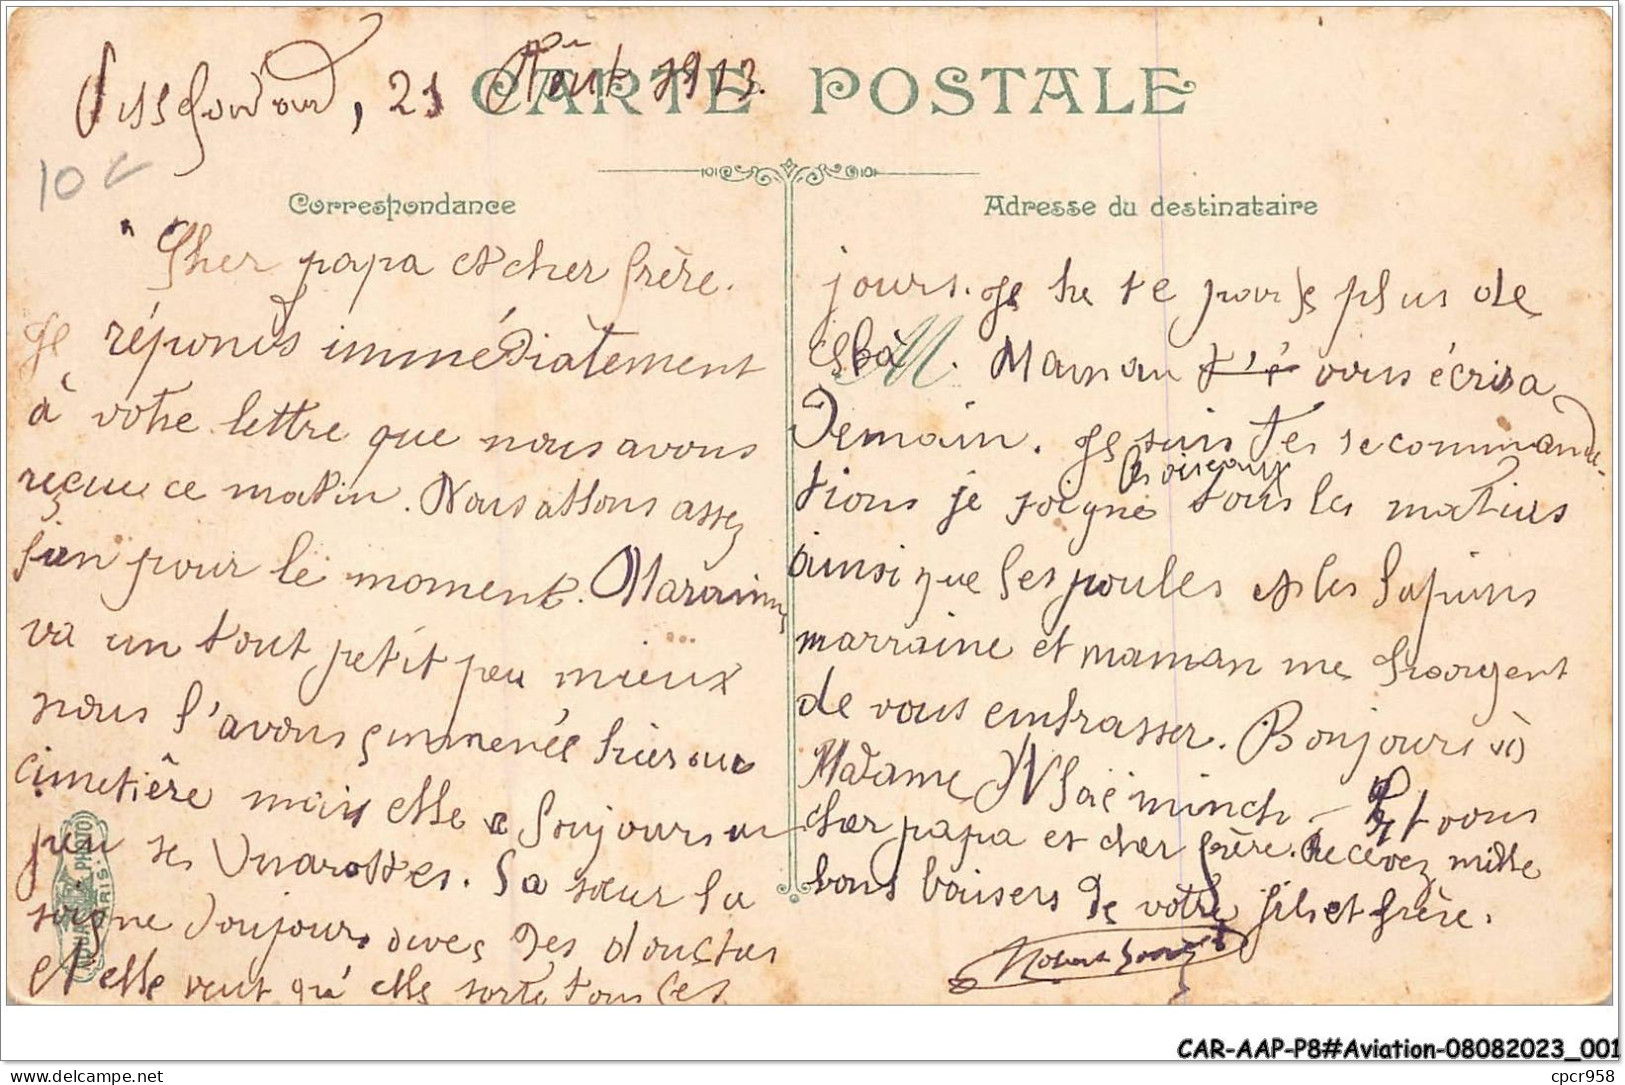 , 21 Août 1913.
CARTE POSTALE
10 c
Correspondance
Cher papa et cher frère.
Je réponds immédiàtement
à votre lettre que nous avons
reçue ce matin. Nous allons assez
bien pour le moment. Marraine
va un tout petit peu mieux
nous l'avons emmenée hier au
cimetière mais elle a toujours un
peu ses. Sa sœur la
soigne toujours avec des douches
et elle veut qu'elle sorte tous les
Adresse du destinataire
jours. Je ne te parle plus de
M. Maman vous écrira
Demain. Je suis tes recommanda-
les oiseaux
tions je soigne tous les matins
ainsi que les poules et les lapins
marraine et maman me chargent
de vous embrasser. Bonjours à
Madame. Et vous
cher papa et cher frère. Recevez mille
bons baisers de votre fils et frère.
Robert
PHOTO
PARIS
CAR-AAP-P8#Aviation-08082023_001
cpcr958